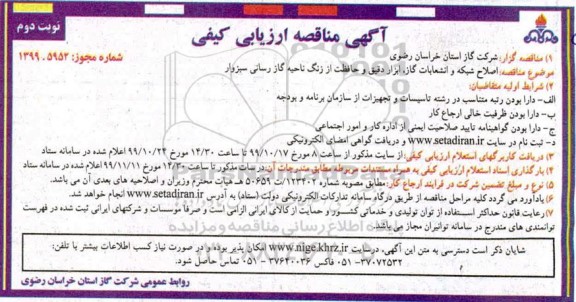 آگهی مناقصه ارزیابی کیفی
نوبت دوم
شماره مجوز: ۱۳۹۹.۵۹۵۲
۱) مناقصه گزار: شرکت گاز استان خراسان رضوی
موضوع مناقصه: اصلاح شبکه و انشعابات گاز، ابزار دقیق و حفاظت از زنگ ناحیه گاز رسانی سبزوار
۲) شرایط اولیه متقاضیان:
الف- دارا بودن رتبه متناسب در رشته تاسیسات و تجهیزات از سازمان برنامه و بودجه
ب- دارا بودن ظرفیت خالی ارجاع کار
ج- دارا بودن گواهینامه تایید صلاحیت ایمنی از اداره کار و امور اجتماعی
د- ثبت نام در سایت www.setadiran.ir و دریافت گواهی امضای الکترونیکی
۳) دریافت کاربرگهای استعلام ارزیابی کیفی: از سایت مذکور از ساعت ۸ مورخ ۹۹/۱۰/۱۷ تا ساعت ۱۴/۳۰ مورخ ۹۹/۱۰/۲۴ اعلام شده در سامانه ستاد
۴) بارگذاری اسناد استعلام ارزیابی کیفی به همراه مستندات مربوطه مطابق مندرجات آن: در سایت مذکور تا ساعت ۱۴/۳۰ مورخ ۹۹/۱۱/۱۱ اعلام شده در سامانه ستاد
۵) نوع و مبلغ تضمین شرکت در فرایند ارجاع کار: مطابق مصوبه شماره ۱۲۳۴۰۲/ت ۵۰۶۵۹ هـ هیات محترم وزیران و اصلاحیه های بعدی آن می باشد.
۶) یادآوری می گردد کلیه مراحل مناقصه از طریق درگاه سامانه تدارکات الکترونیکی دولت (ستاد) به آدرس www.setadiran.ir انجام خواهد شد.
۷) رعایت قانون حداکثر استفاده از توان تولیدی و خدماتی کشور و حمایت از کالای ایرانی الزامی است و صرفاً موسسات و شرکتهای ایرانی ثبت شده در فهرست
توانمندی های مندرج در سامانه توانیران مجاز می باشد.
شایان ذکر است دسترسی به متن این آگهی، درسایت www.nigc.khrz.ir امکان پذیر بوده و در صورت نیاز کسب اطلاعات بیشتر با تلفن:
۳۷۰۷۲۵۳۲-۰۵۱ فاکس ۳۷۶۴۰۰۳۶-۰۵۱ تماس حاصل شود.
روابط عمومی شرکت گاز استان خراسان رضوی